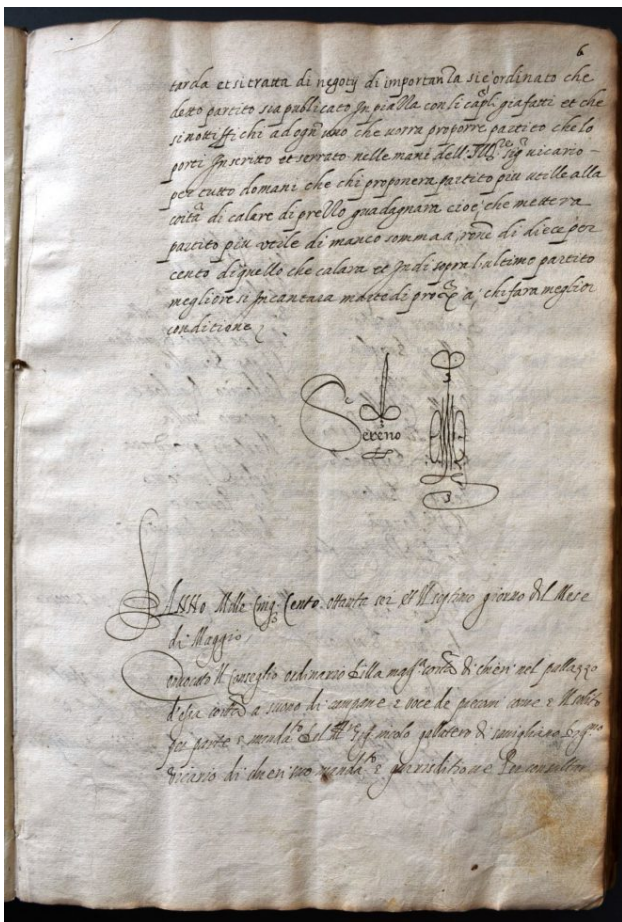 6
tarda et si tratta di negotij di importanza si e ordinato che
detto partito sia publicato In piazza con li cap.li gia fatti et che
si nottiffichi ad ogn'uno che vorra proporre partito che lo
porti In scritto et serrato nelle mani dell' Ill.re sig.r vicario
per tutto domani che chi proponera partito piu utille alla
co.ita di calare di prezzo guadagnara cioe che mettera
partito piu utile di manco somma a rone di diece per
cento di quello che calara et Indi sopra l'ultimo partito
megliore si Incantara martedi pro.x a chi fara meglior
conditione
Sereno
Anno Mille Cinq. Cento ottanta sei et Il septimo giorno del Mese
di Maggio
Il Conseglio ordinario della mag.ca co.ita di cheri nel pallazzo
d'essa co.ita a suono di campane e voce de preconi come e Il solito
per parte e manda.to del
vicario di cheri suo manda.to e giurisditione Per consultar